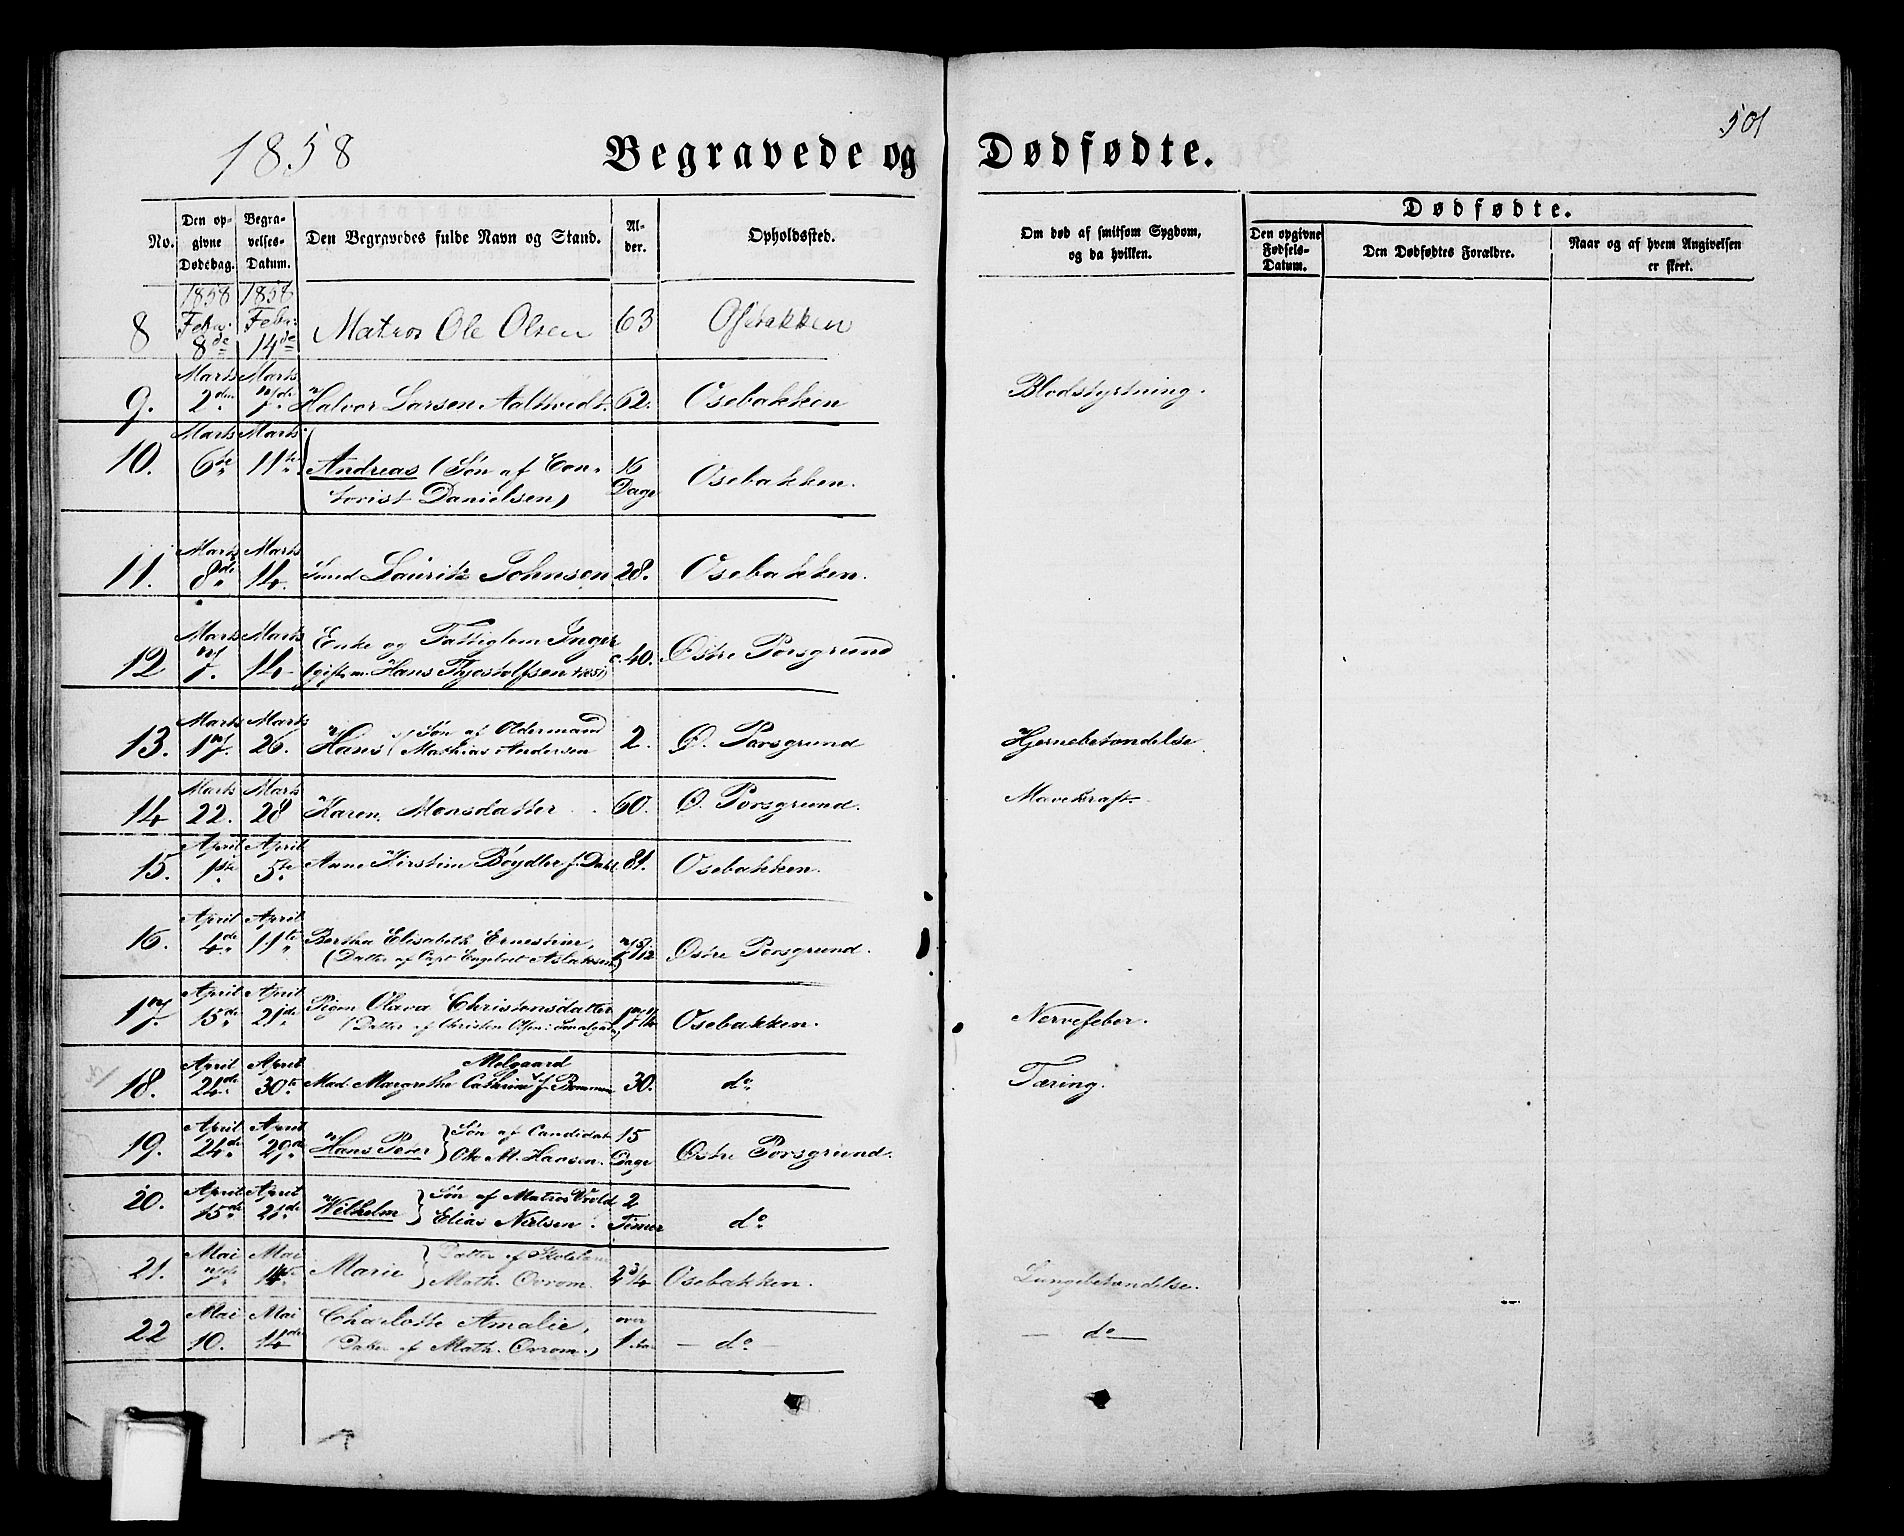 501
1858 Begravede og Dødfødte.
No. Den opgivne Dødsdag. Begravelses-Datum. Den Begravedes fulde Navn og Stand. Alder. Opholdssted. Om død af smitsom Sygdom, og da hvilken. Dødfødte. Den opgivne Fødsels-Datum. Den Dødfødtes Forældre. Naar og af hvem Angivelsen er skeet.
1858 1858
8 Febr. 8de Febr. 14de Matros Ole Olsen 63 Osebakken
9. Marts 2den Marts 7de Halvor Larsen Aaltvedt. 62. Osebakken Blodstyrtning.
10. Marts 6te Marts 11te Andreas (Søn af Con-
torist Danielsen) 16 Dage Osebakken.
11. Marts 8de Marts 14. Smed Lauritz Johnsen 28. Osebakken.
12 Marts 7. Marts 14. Enke og Fattiglem Inger
(gift m. Hans Thjostolfsen †1851) c. 40. Østre Porsgrund
13. Marts 17. Marts 26. Hans (Søn af Oldermand
Mathias Andersen 2. Ø. Porsgrund Hjernebetændelse
14 Marts 22. Marts 28 Karen Monsdatter 60. Ø. Porsgrund. Mavekraft.
15. April 1ste April 5te Anne Kirstine Bøydler f. Dahl. 81. Osebakken.
16. April 4de April 11te Bertha Elisabeth Ernestine,
(Datter af Capt Engebret Aslaksen) 5/12 Østre Porsgrund.
17. April 15de April 21de Pigen Olava Christensdatter
(Datter af Christen Olsen 17 Osebakken. Nervefeber.
18. April 24de April 30te Mad. Margrethe Cathrine Melgaard f. 30. do Tæring.
19. April 24de April 29de Hans Peter } Søn af Candidat
Otto M. Hansen. 15 Dage Østre Porsgrund.
20. April 15de April 21de Wilhelm } Søn af Matros
Elias Nielsen. 2 Timer do
21. Mai 7de Mai 14de Marie } Datter af
Math. Ovrom. 2 3/4 Osebakken. Lungebetændelse.
22 Mai 10. Mai 14de Charlotte Amalie,
(Datter af Math. Ovrom.) over 1 Aar – do – – do –